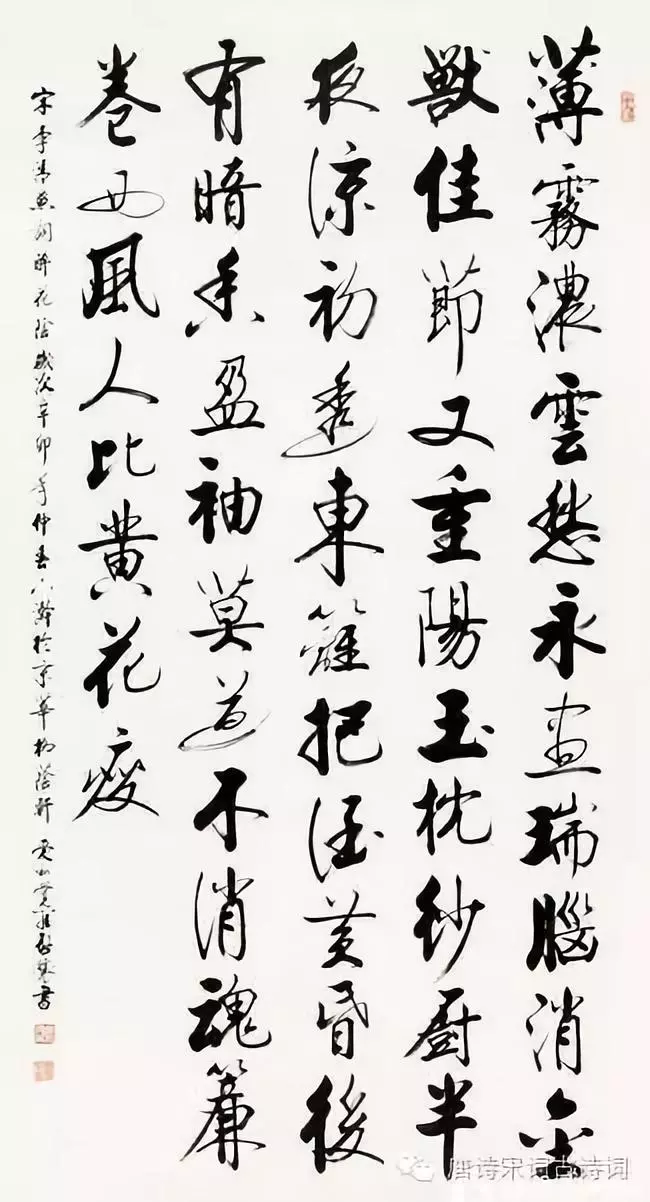 薄霧濃雲愁永晝瑞腦消金
獸佳節又重陽玉枕紗廚半
夜涼初透東籬把酒黃昏後
有暗香盈袖莫道不消魂簾
卷西風人比黃花瘦
宋李清照詞醉花陰歲次辛卯年仲春於京華柳蔭軒書
唐诗宋词古诗词